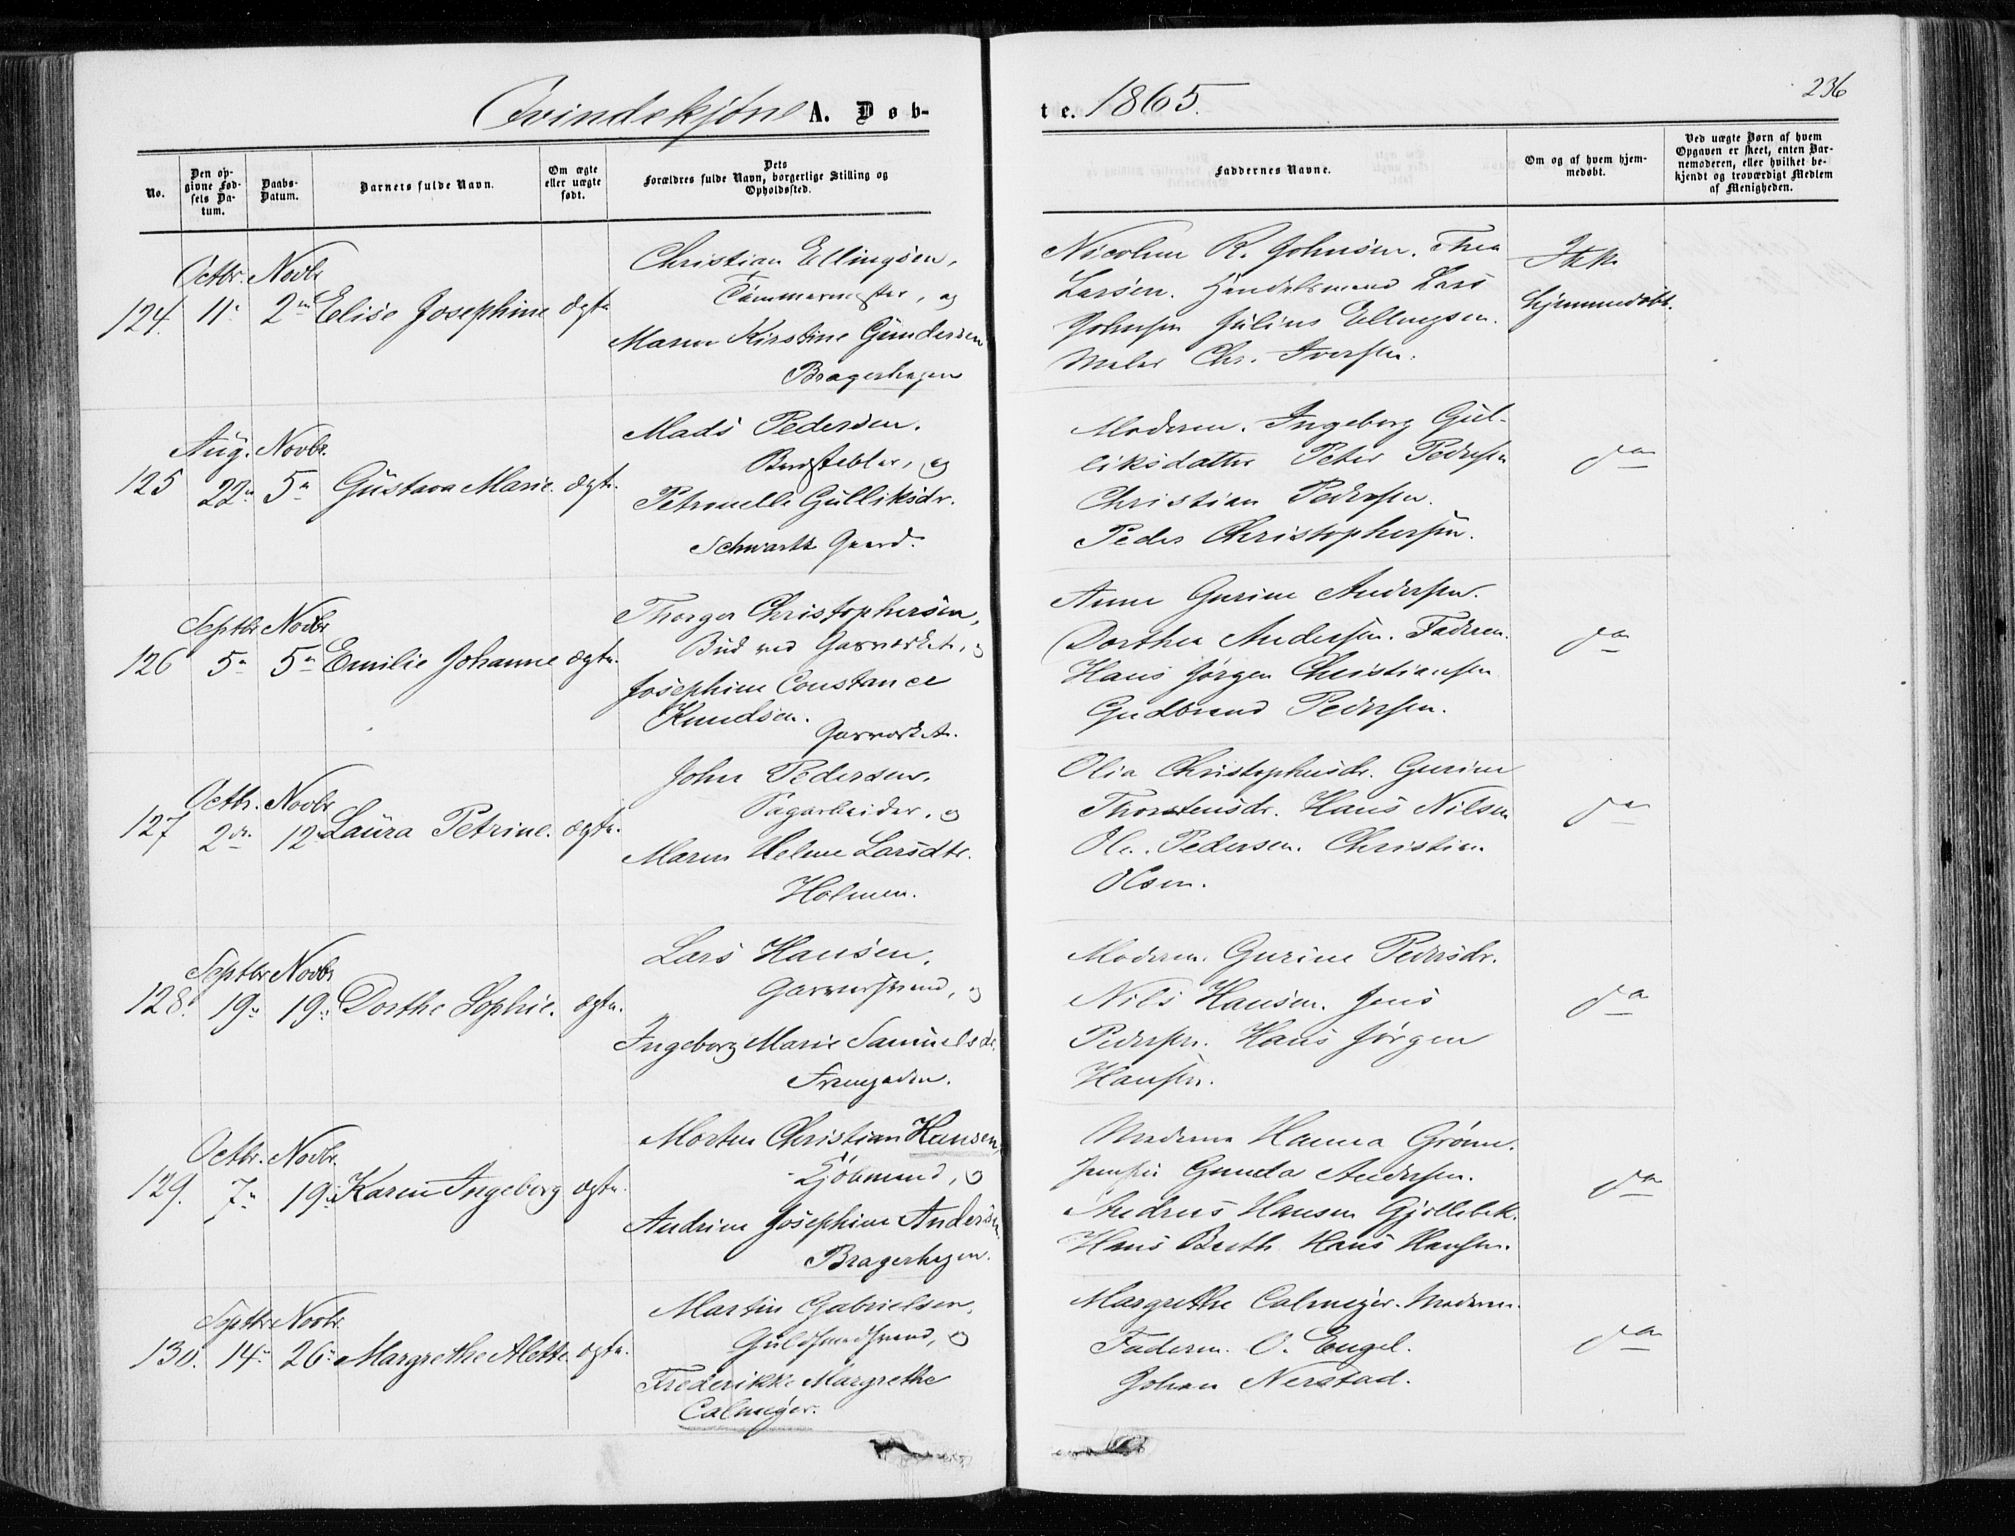 236
Qvindekjøn A. Døb-
te. 1865.
No.
Den op-
givne Fød-
sels Da-
tum.
Daabs-
Datum.
Barnets fulde Navn.
Om ægte
eller uægte
født.
Dets
Forældres fulde Navn, borgerlige Stilling og
Opholdssted.
Faddernes Navne.
Om og af hvem hjem-
medøbt.
Ved uægte Børn af hvem
Opgaven er skeet, enten Bar-
nemoderen, eller hvilket be-
kjendt og troværdigt Medlem
af Menigheden.
Octbr. Novbr
124. 11. 2 Elise Josephine ægte
Christian Ellingsen,
Tømmermester, og
Maren Kirstine Gundersen
Bragerhagen
Nicoline R. Johnsen. Thea
Larsen. Handelsmand Lars
Johnsen Julius Ellingsen.
Maler Chr. Iversen.
Ikke
hjemmedøbt.
Aug. Novbr.
125 22 5 Gustava Marie. ægte.
Mads Pedersen.
og
Petronelle Gulliksdr.
Schwartz Gaard.
Moderen. Ingeborg Gul-
liksdatter Peter Pedersen
Christian Pedersen.
Peder Christophersen.
do
Septbr Novbr
126 5 5 Emilie Johanne ægte.
Thorger Christophersen,
Bud ved Gasværket, og
Josephine Constance
Knudsen.
Gasværket.
Anne Gurine Andersen.
Dorthea Andersen. Faderen.
Hans Jørgen Christiansen
Gudbrand Pedersen.
do
Octbr. Novbr
127 2 12 Laura Petrine. ægte.
John Pedersen.
Sagarbeider, og
Maren Helene Larsdtr.
Holmen.
Olia Christophersdr. Gurine
Thorstensdr. Hans Nilsen
Ole Pedersen. Christian
Olsen.
do
Septbr Novbr
128. 19 19 Dorthe Sophie. ægte.
Lars Hansen,
Garversvend, og
Ingeborg Marie Samuelsdr.
Fremgaden.
Moderen. Gurine Pedersdr.
Nils Hansen. Jens
Pedersen. Hans Jørgen
Hansen.
do
Octbr. Novbr.
129. 7 19 Karen Ingeborg ægte.
Morten Christian Hansen,
Kjøbmand, og
Andrine Josephine Andersen.
Bragerhagen.
Madame Hanna Grønn.
Jomfru Gunda Andersen.
Andreas Hansen Gjellebek.
Hans Berth Hans Hansen.
do
Septbr Novbr.
130. 14 26 Margrethe Alette ægte.
Martin Gabrielsen,
Guldsmedsvend, og
Frederikke Margrethe
Calmeyer.
Margrethe Calmeyer. Moderen.
Faderen. O. Engel.
Johan Nerstad.
do